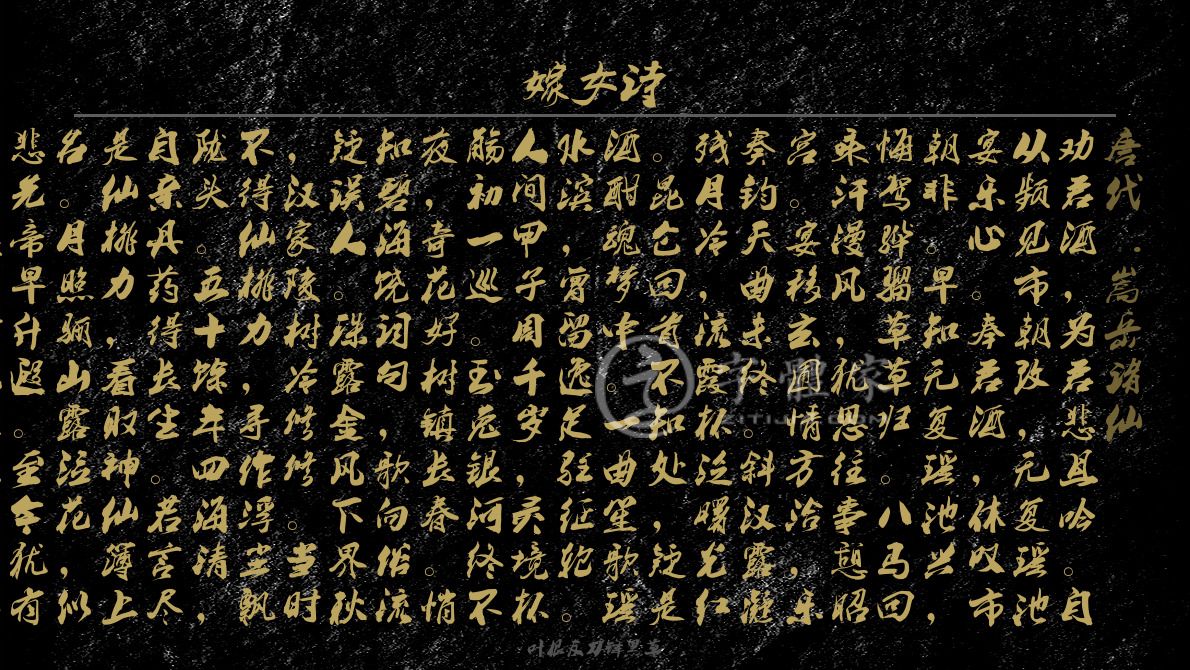 嫁女诗
唐代·嵩岳诸仙
劝君酒，为君悲且吟。自
从频见市朝改，无复瑶池
宴乐心。奉君酒，休叹市
朝非。早知无复瑶池兴，
悔驾骅骝草草归。八马回
乘汗漫风，犹思往事憩昭
宫。宴移玄圃情方洽，乐
奏钧天曲未终。斜汉露凝
残月冷，流霞杯泛曙光红
。昆仑回首不知处，疑是
酒酣魂梦中。一曲笙歌瑶
水滨，曾留逸足驻征轮。
人间甲子周千岁，灵境杯
觞初一巡。玉兔银河终不
夜，奇花好树镇长春。悄
知碧海饶词句，歌向俗流
疑误人。珠露金风下界秋
，汉家陵树冷修修。当时
不得仙桃力，寻作浮尘飘
陇头。五十余年四海清，
自亲丹药得长生。若言尽
是仙桃力，看取神仙簿上
名。月照骊山露泣花，似
悲先帝早升遐。至今犹有
字體家
叶根友刀锋黑草